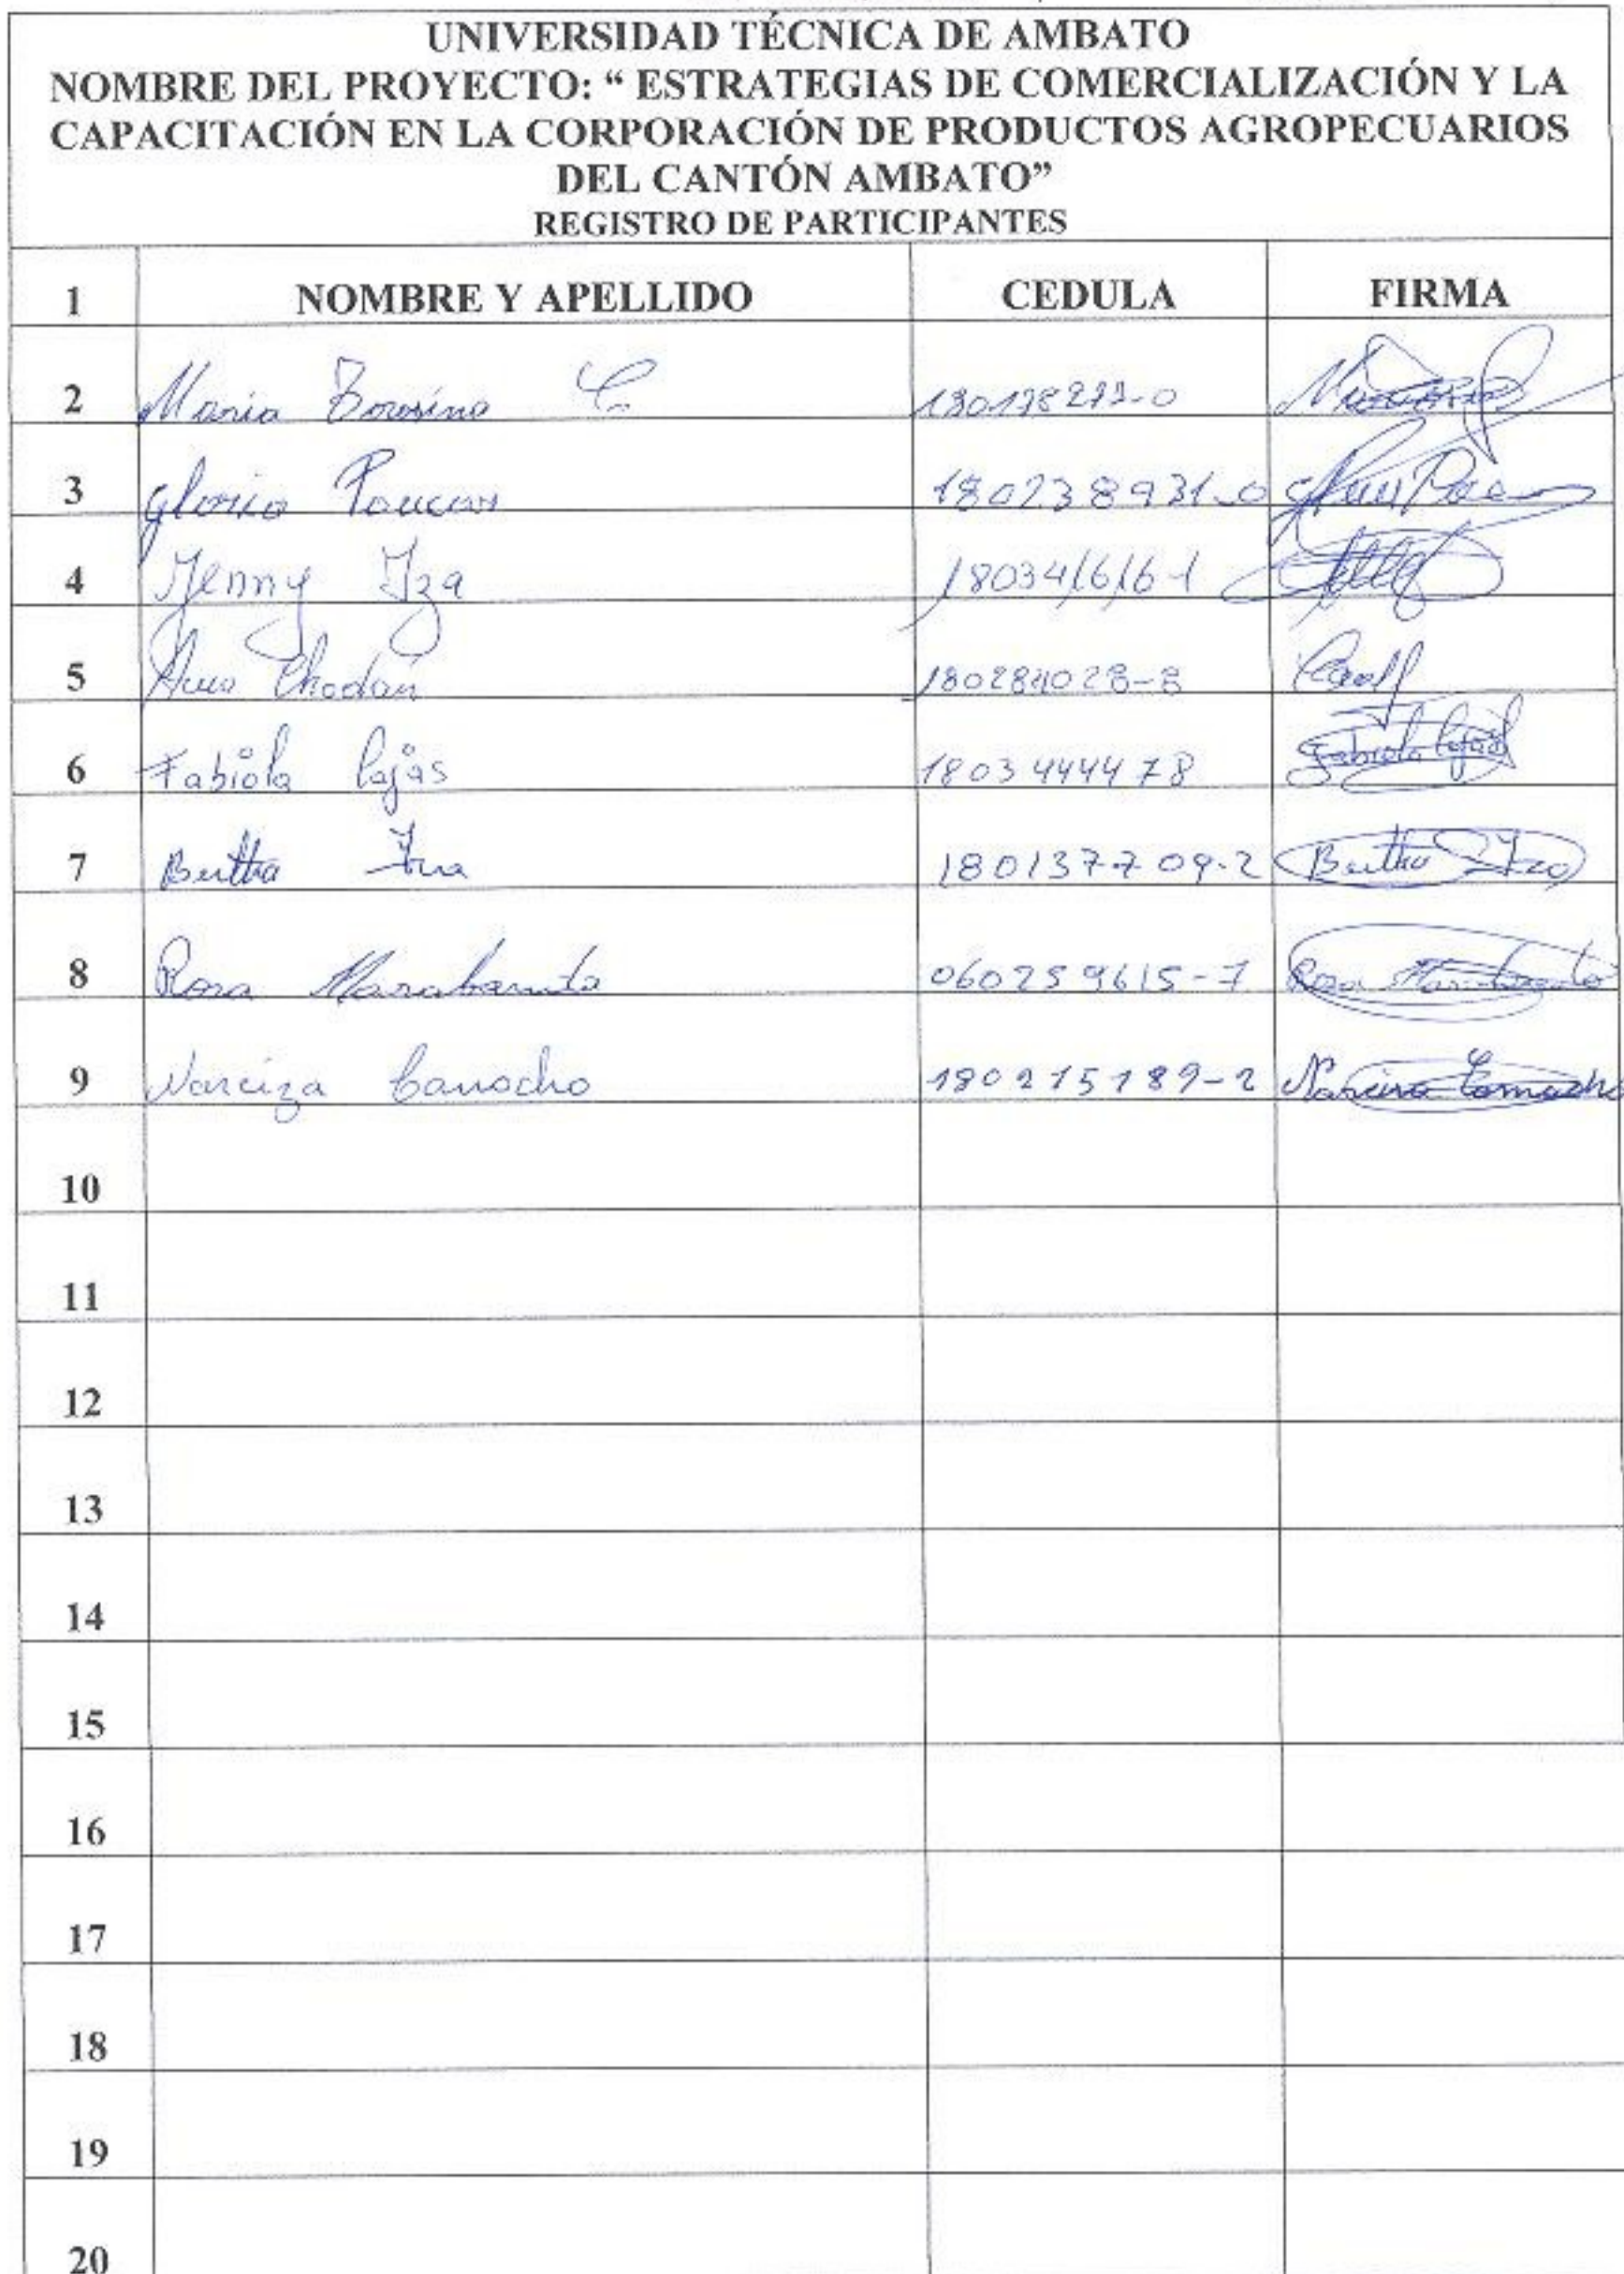 UNIVERSIDAD TÉCNICA DE AMBATO
NOMBRE DEL PROYECTO: “ ESTRATEGIAS DE COMERCIALIZACIÓN Y LA
CAPACITACIÓN EN LA CORPORACIÓN DE PRODUCTOS AGROPECUARIOS
DEL CANTÓN AMBATO”
REGISTRO DE PARTICIPANTES
1 NOMBRE Y APELLIDO CEDULA FIRMA
2 Maria
3 Gloria Paucar 180238931-0
4 Jenny Iza 180341616-1
5
6 Fabiola 1803444478 Fabiola
7 Bertha 180137709-2 Bertha Iza
8 Rosa 060259615-7 Rosa
9 Narciza Camacho 180215189-2 Narciza Camacho
10
11
12
13
14
15
16
17
18
19
20